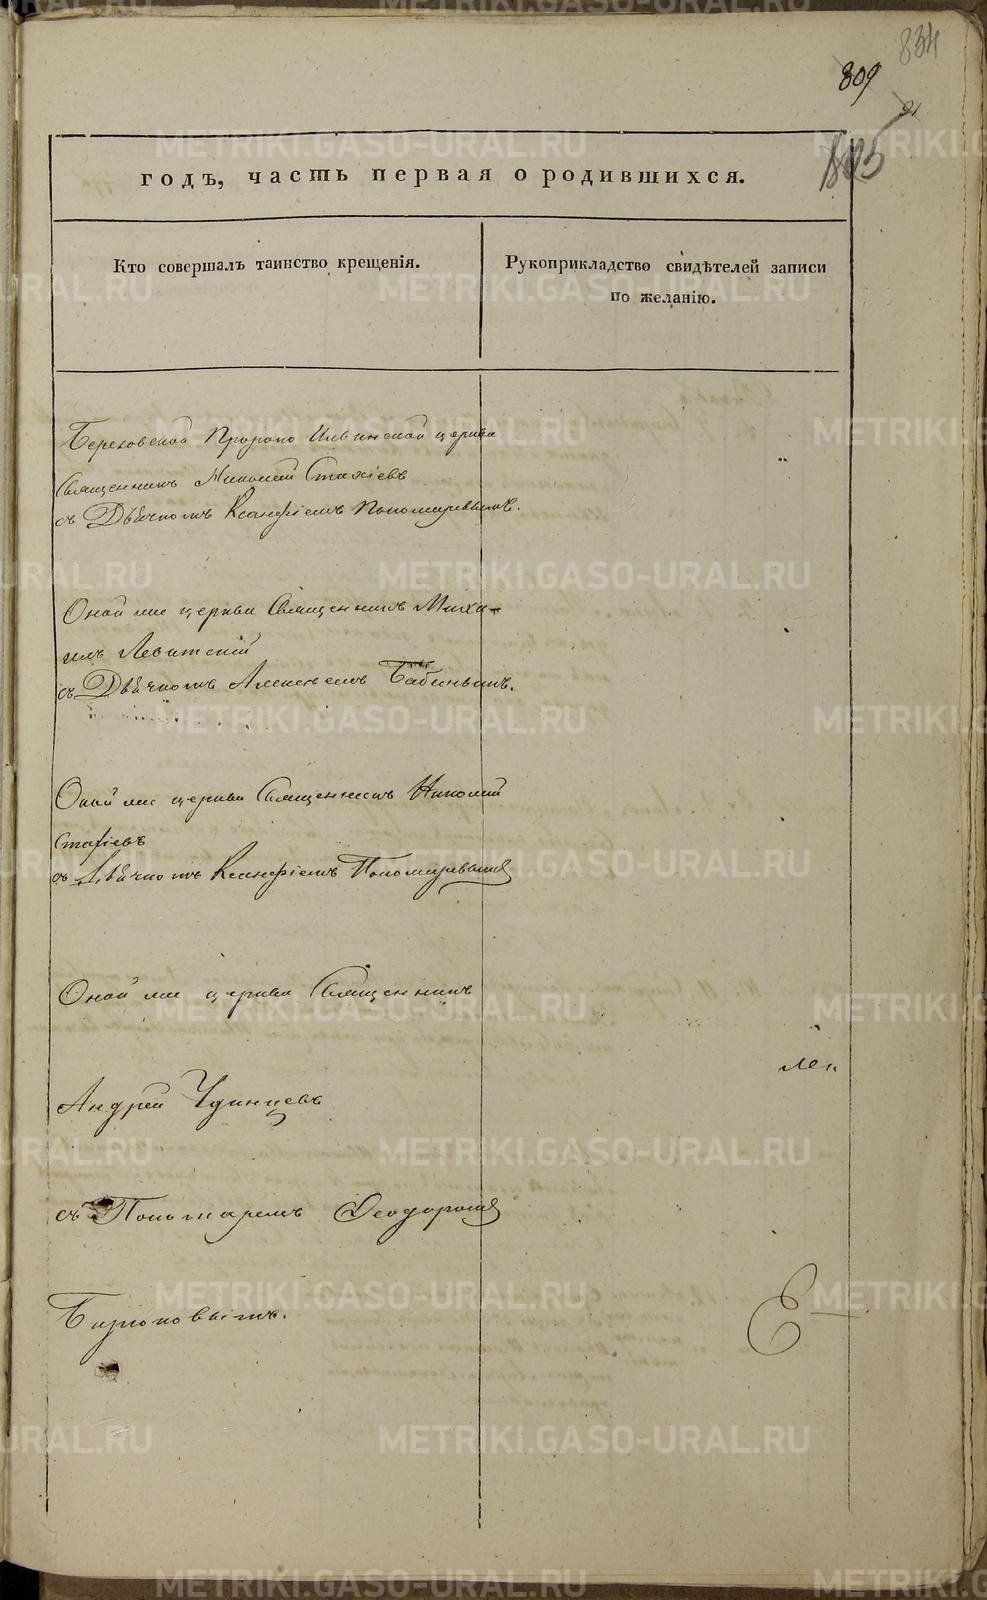 834
809
91
805
годъ, часть первая о родившихся.
Кто совершалъ таинство крещенія.
Рукоприкладство свидѣтелей записи
по желанію.
Пророко Ильинской церкви
Священникъ Николай Стахіевъ
съ Дьячкомъ Ксанфіемъ Пономаревымъ.
Оной же церкви Священникъ Миха-
илъ Левитскій
съ Дьячкомъ Алексѣемъ Бабинымъ.
Оной же церкви Священникъ Николай
Стафіевъ
съ Дьячкомъ Ксанфіемъ Пономаревымъ
Оной же церкви Священникъ
Андрей Удинцевъ
съ Пономаремъ Ѳеодоромъ
METRIKI.GASO-URAL.RU